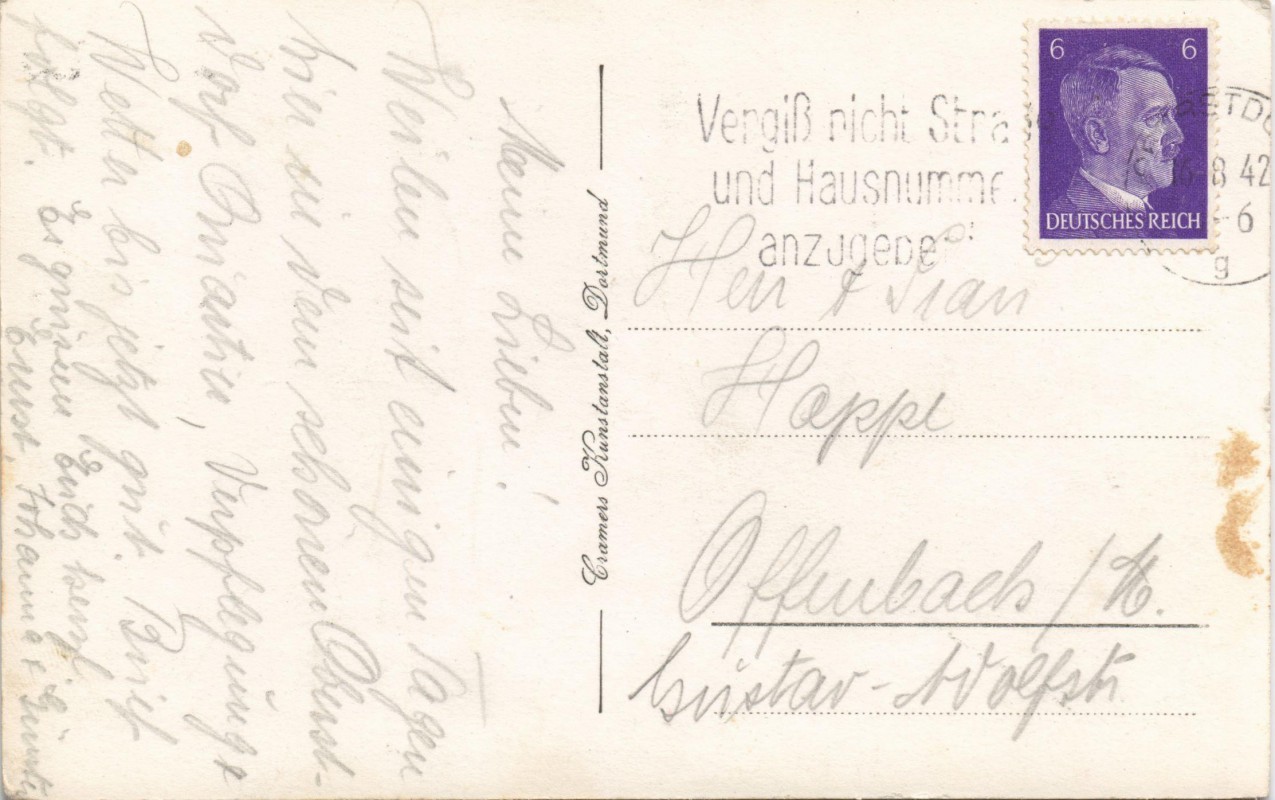 Meine Lieben!
Weilen seit einigen Tagen
hier in dem schönen Oberst-
dorf. Quartier, Verpflegung &
Wetter bis jetzt gut. Brief
folgt. Es grüssen Euch herzl.
Ernst, Johanna & Günter
Cramers Kunstanstalt, Dortmund
Vergiß nicht Stra
und Hausnumme
anzugeben
6 6
DEUTSCHES REICH
RSTDO
16-8 42
-6
g
Herr & Frau
Happe
Offenbach / M.
Gustav-Adolfstr